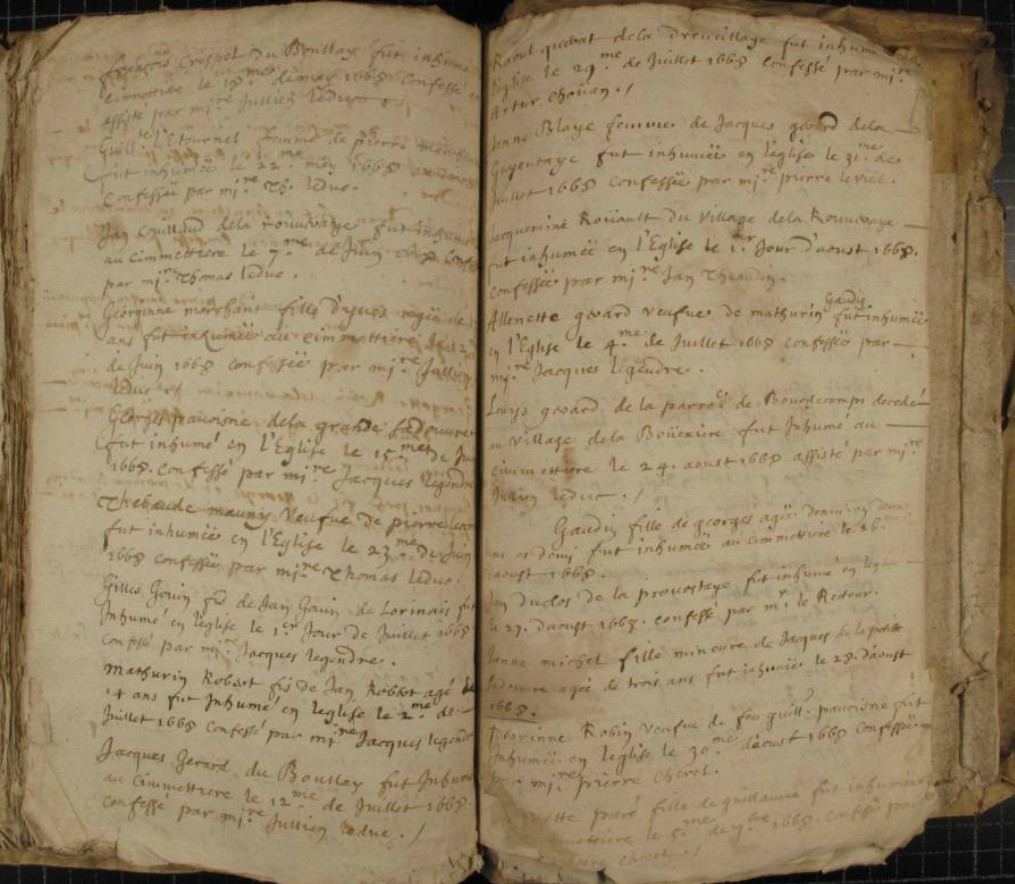 françois Crespel du Boullay fut inhumé
cimettiere le 18.me de may 1668 Confessé
assisté par mi.re Jullien leduc
Guill.te l'Etournel femme de pierre
fut inhumée le 22.me may 1668
Confessée par mi.re Th. leduc.
Jan Couillaud dela rouuraye fut inhumé
au cimmettiere le 7.me de Juin 1668
par mi.re Thomas leduc.
Georginne marchant fille
ans fut inhumée au cimmettiere le 12
de Juin 1668 confessée par mi.re Jullien
leduc
Georges pauoisne dela grande
fut inhumé en l'Eglise le 15.me de Juin
1668. Confessé par mi.re Jacques legendre
Thebaude mauny Veufue de pierre
fut inhumée en l'Eglise le 23.me de Juin
1668 confessée par mi.re Thomas leduc
Gilles Gouin fis de Jan Gouin de Lorinais fut
Inhumé en l'eglise le 1.er Jour de Juillet 1668
Confessé par mi.re Jacques legendre.
Mathurin Robert fis de Jan Robert agé de
14 ans fut Inhumé en leglise le 2.me de
Juillet 1668 Confessé par mi.re Jacques legendre
Jacques Gerard du Boullay fut Inhumé
au Cimmettiere le 12.me de Juillet 1668.
Confessé par mi.re Jullien leduc ./
Raoul dela fut inhumé
l'eglise le 29.me de Juillet 1668 Confessé par mi.re
Artur chouan ./
Janne Blaye femme de Jacques gerard dela
fut inhumée en l'eglise le 31.me de
Juillet 1668 Confessée par mi.re pierre levial.
Jacquemine Roüault du Village dela Rouuraye
fut inhumée en l'Eglise le 1.er Jour d'aoust 1668.
Confessée par mi.re Jan
Allenette gerard veufue de mathurin Gaudin fut inhumée
en l'Eglise le 4.me de Juillet 1668 confessée par
mi.re Jacques legendre.
Louys gerard de la parroe. de decedé
au village dela Boüexiere fut Inhumé au
cimmettiere le 24. aoust 1668 assisté par mi.re
Jullien leduc ./
Gaudin fille de georges agée
et demi fut inhumée au cimmettiere le 26
aoust 1668.
Jan duclos de la prouostaye fut inhumé en leglise
le 27. daoust 1668. confessé par m.r le Recteur.
Janne michel fille mineure de Jacques de la petite
agée de trois ans fut inhumée le 28. daoust
1668.
perrinne Robin veufue de feu guill. pauoisne fut
Inhumée en leglise le 30.me daoust 1668 Confessée
mi.re pierre cherel.
paré fille de guillaume fut inhumée
cimettiere le 5.me de 7bre 1668. Confessée par
pierre cherel ./